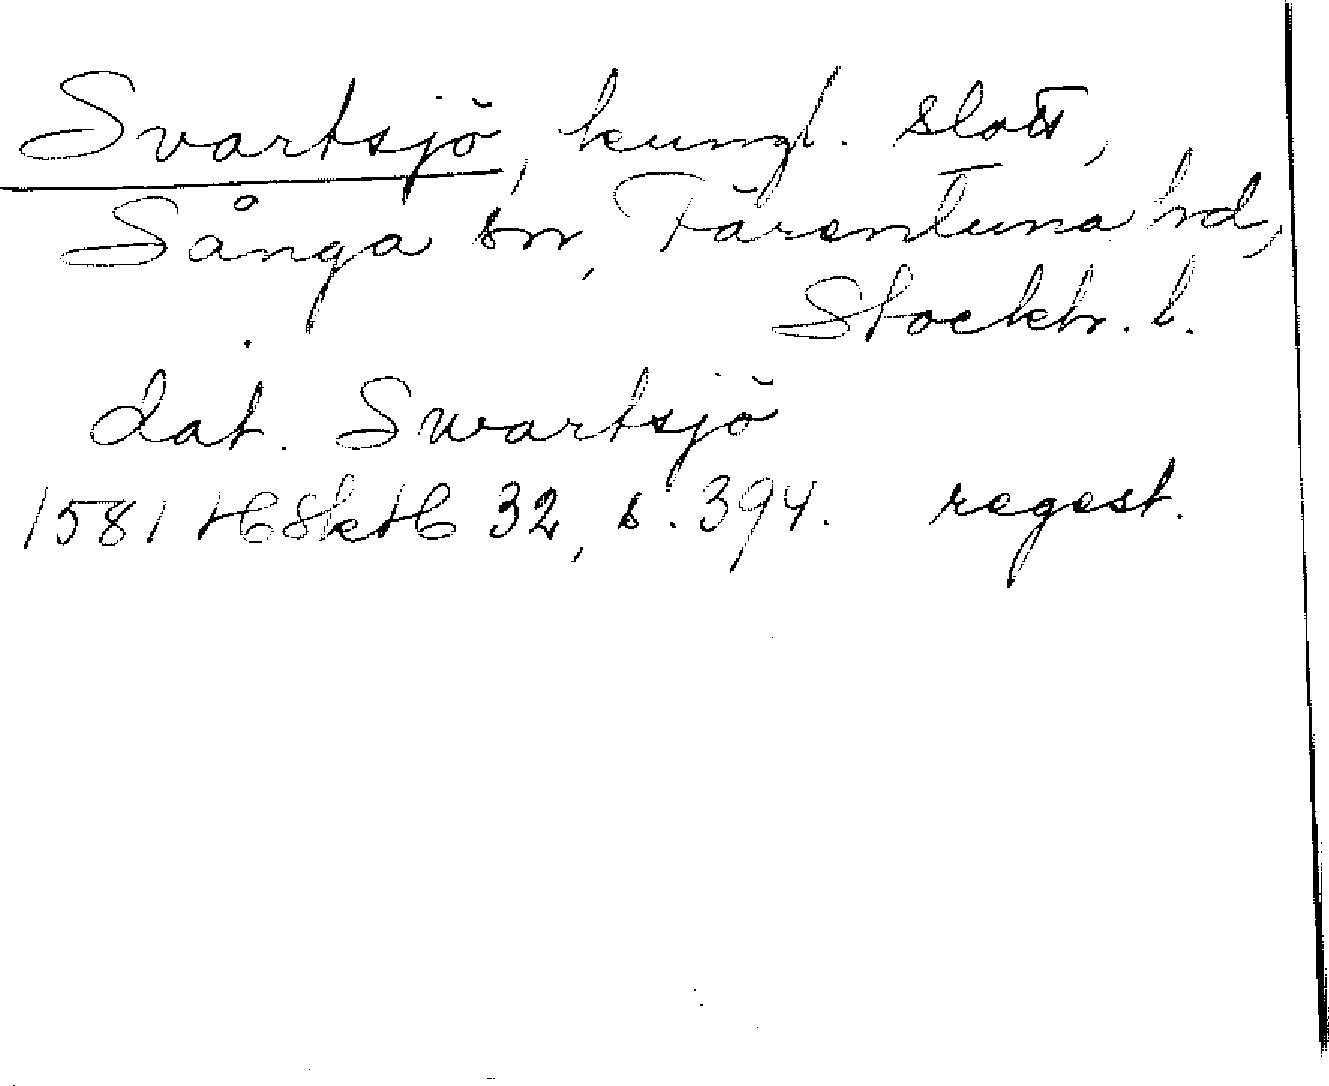 Svartsjö, kungl. slott,
Sånga sn, Färentuna hd,
Stockh. l.
dat. Swartsjö
1581 HSkH 32, s. 394. regest.